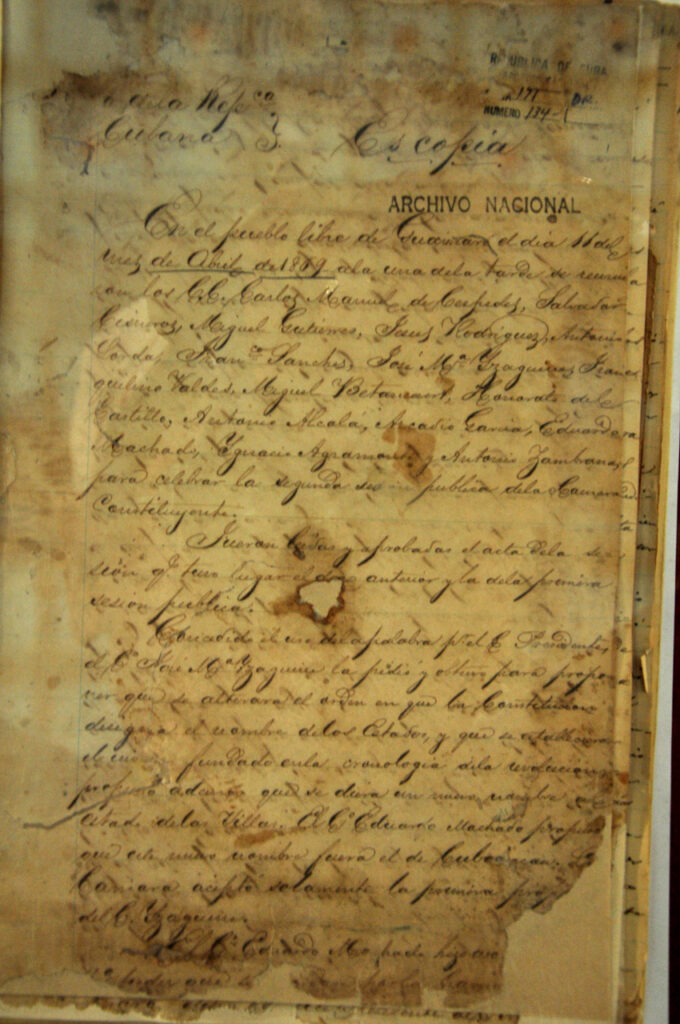 REPUBLICA DE CUBA
NUMERO 134
de la Repca
Cubana
Es copia
ARCHIVO NACIONAL
En el pueblo libre de Guaimaro el dia 11 del
mes de Abril de 1869 ala una dela tarde se reunie
ron los C.C. Carlos Manuel de Cespedes, Salvador
Cisneros, Miguel Gutierres, Jesus Rodriguez, Antonio
Lorda, Franco Sanches, José Ma Yzaguirre,
Valdes, Miguel Betancourt, Honorato del
Castillo, Antonio Alcalá, Arcadio Garcia, Eduardo
Machado, Ygnacio Agramonte y Antonio Zambrana
para celebrar la segunda sesion publica dela Camara
Constituyente.
Fueron leidas y aprobadas el acta dela se
sión q. tuvo lugar el dia anterior y la dela primera
sesion publica.
Concedido el uso dela palabra pr. el C. Presidente
el C. José Ma Yzaguirre la pidió y obtuvo para propo
ner que se alterara el orden en que la Constitucion
designa el nombre delos Estados, y que se estableciera
fundado enla cronologia dela revolucion
propuso ademas que se diera un nuevo nombre
Estado delas Villas. El C. Eduardo Machado propuso
que este nuevo nombre fuera el de Cubanacan. La
Camara aceptó solamente la primera
del C. Yzaguirre.
El C. Eduardo Machado